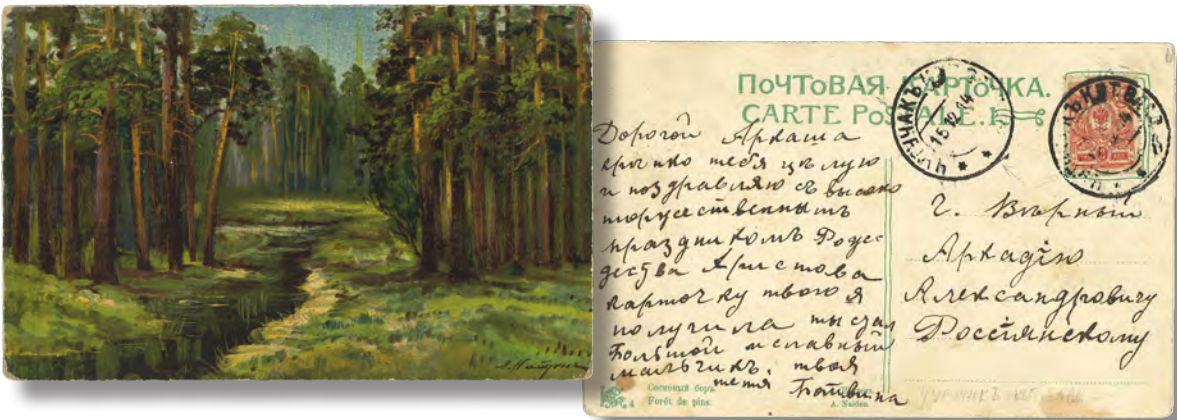 ПОЧТОВАЯ КАРТОЧКА.
CARTE POSTALE.
Дорогой Аркаша
крѣпко тебя цѣлую
и поздравляю съ высоко
торжественнымъ
праздникомъ Рожде-
дества Христова
карточку твою я
получила ты стал
большой и славный
мальчикъ. твоя
тетя
г. Вѣрный
Аркадію
Александровичу
Россійнскому
Сосновый боръ.
Forêt de pins.
A. Naiden.
15 12 14
4